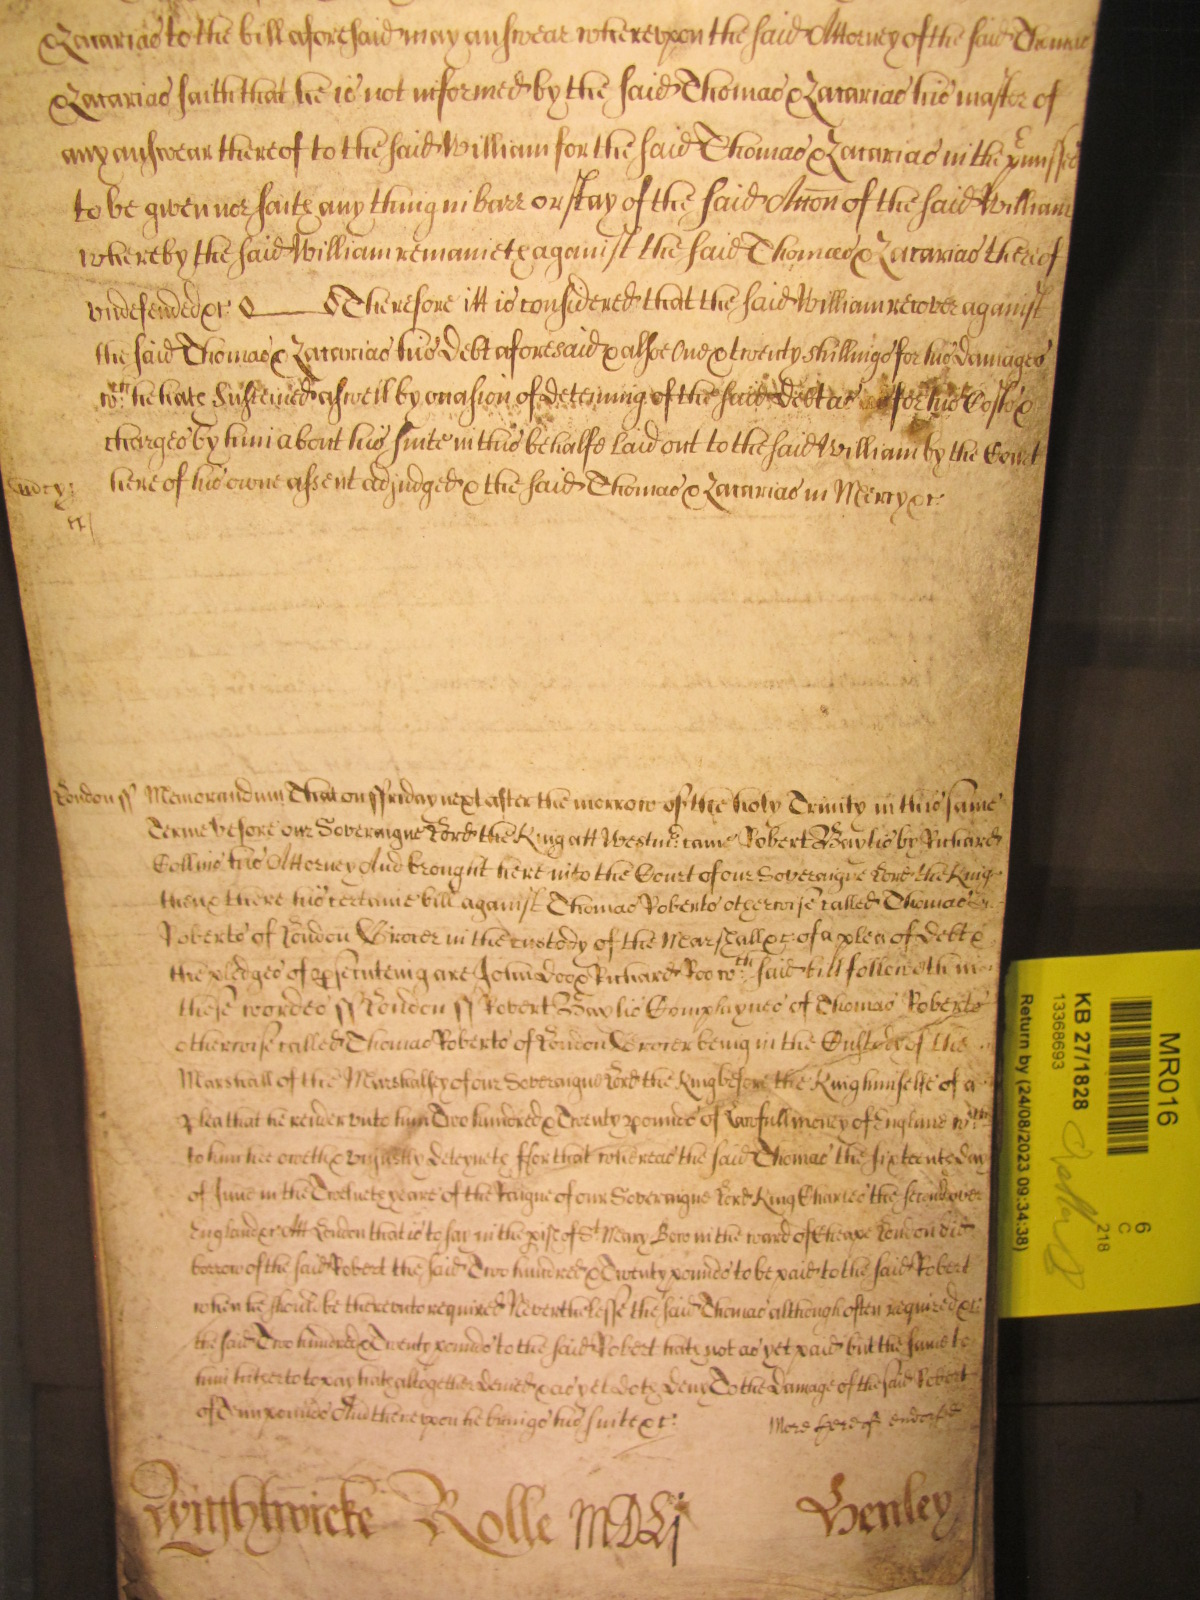 Zacarias to the bill aforesaid may answear whereupon the said Attorney of the said Thomas
& Zacarias saith that he is not informed by the said Thomas & Zacarias his master of
any answear thereof to the said William for the said Thomas & Zacarias in the p̱rmisses
to be given nor saith any thing in barr or stay of the said Acc̄on of the said William
whereby the said William remaineth against the said Thomas & Zacarias thereof
undefended &c Therefore itt is considered that the said William recover against
the said Thomas & Zacarias his debt aforesaid & alsoe One & twenty shillings for his damages
wch he hath susteined aswell by occasion of deteining of the said debt as for his Costs &
charges by him about his suite in this behalfe laid out to the said William by the Court
here of his owne assent adjudged & the said Thomas & Zacarias in Mercy &c
London ss Memorandum That on ffriday next after the morrow of the holy Trinity in this same
Terme before our Soveraigne Lord the King att Westmr came Robert Baylis by Richard
Collins his Attorney And brought here into the Court of our Soveraigne Lord the King
then & there his certaine bill against Thomas Roberts otherwise called Thomas
Roberts of London Grocer in the custody of the Marshall &c of a plea of debt &
the pledges of ꝓsecuteing are John Doo & Richard Roo wch said bill followeth in
these wordes ss London ss Robert Baylis Complaynes of Thomas Roberts
otherwise called Thomas Roberts of London Grocer being in the Custody of the
Marshall of the Marshalsey of our Soveraigne Lord the King before the King himselfe of a
plea that he render unto him Two hundred & Twenty pounds of lawfull money of England wch
to him hee oweth & uniustly deteyneth ffor that whereas the said Thomas the sixteenth day
of June in the Twelveth yeare of the Reigne of our Soveraigne Lord King Charles the second over
England &c Att London that is to say in the pish of St Mary Bow in the ward of Cheape London did
borrow of the said Robert the said Two hundred & Twenty pounds to be paid to the said Robert
when he should be thereunto required Neverthelesse the said Thomas although often required &c
the said Two hundred & Twenty pounds to the said Robert hath not as yet paid but the same to
him hitherto to pay hath altogether denied & as yet doth deny To the damage of the said Robert
of Tenn pounds And thereupon he brings his suite &c
More hereof endorsed
Wightwicke Rolle Henley
MR016
KB 27/1828
13368693
6
C
218
Return by (24/08/2023 09:34:38)